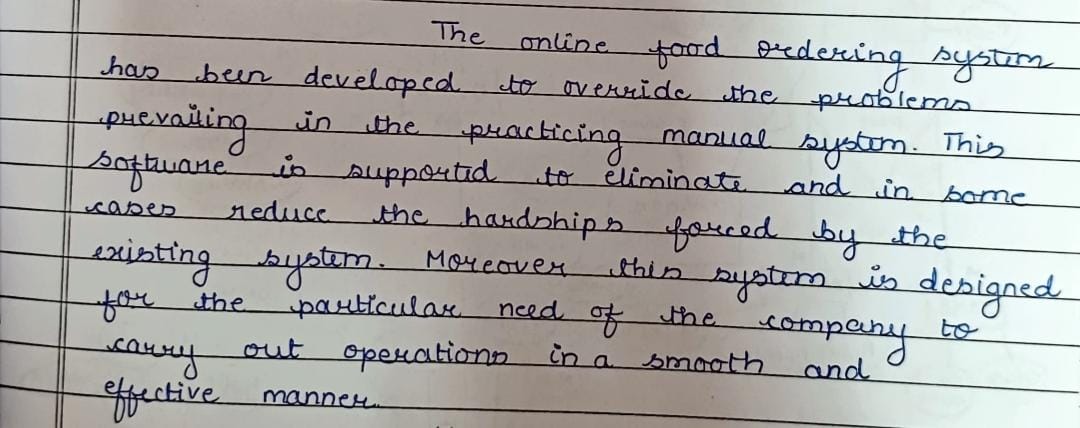 The online food ordering system
has been developed to override the problems
prevailing in the practicing manual system. This
software is supported to eliminate and in some
cases reduce the hardships forced by the
existing system. Moreover this system is designed
for the particular need of the company to
carry out operations in a smooth and
effective manner.